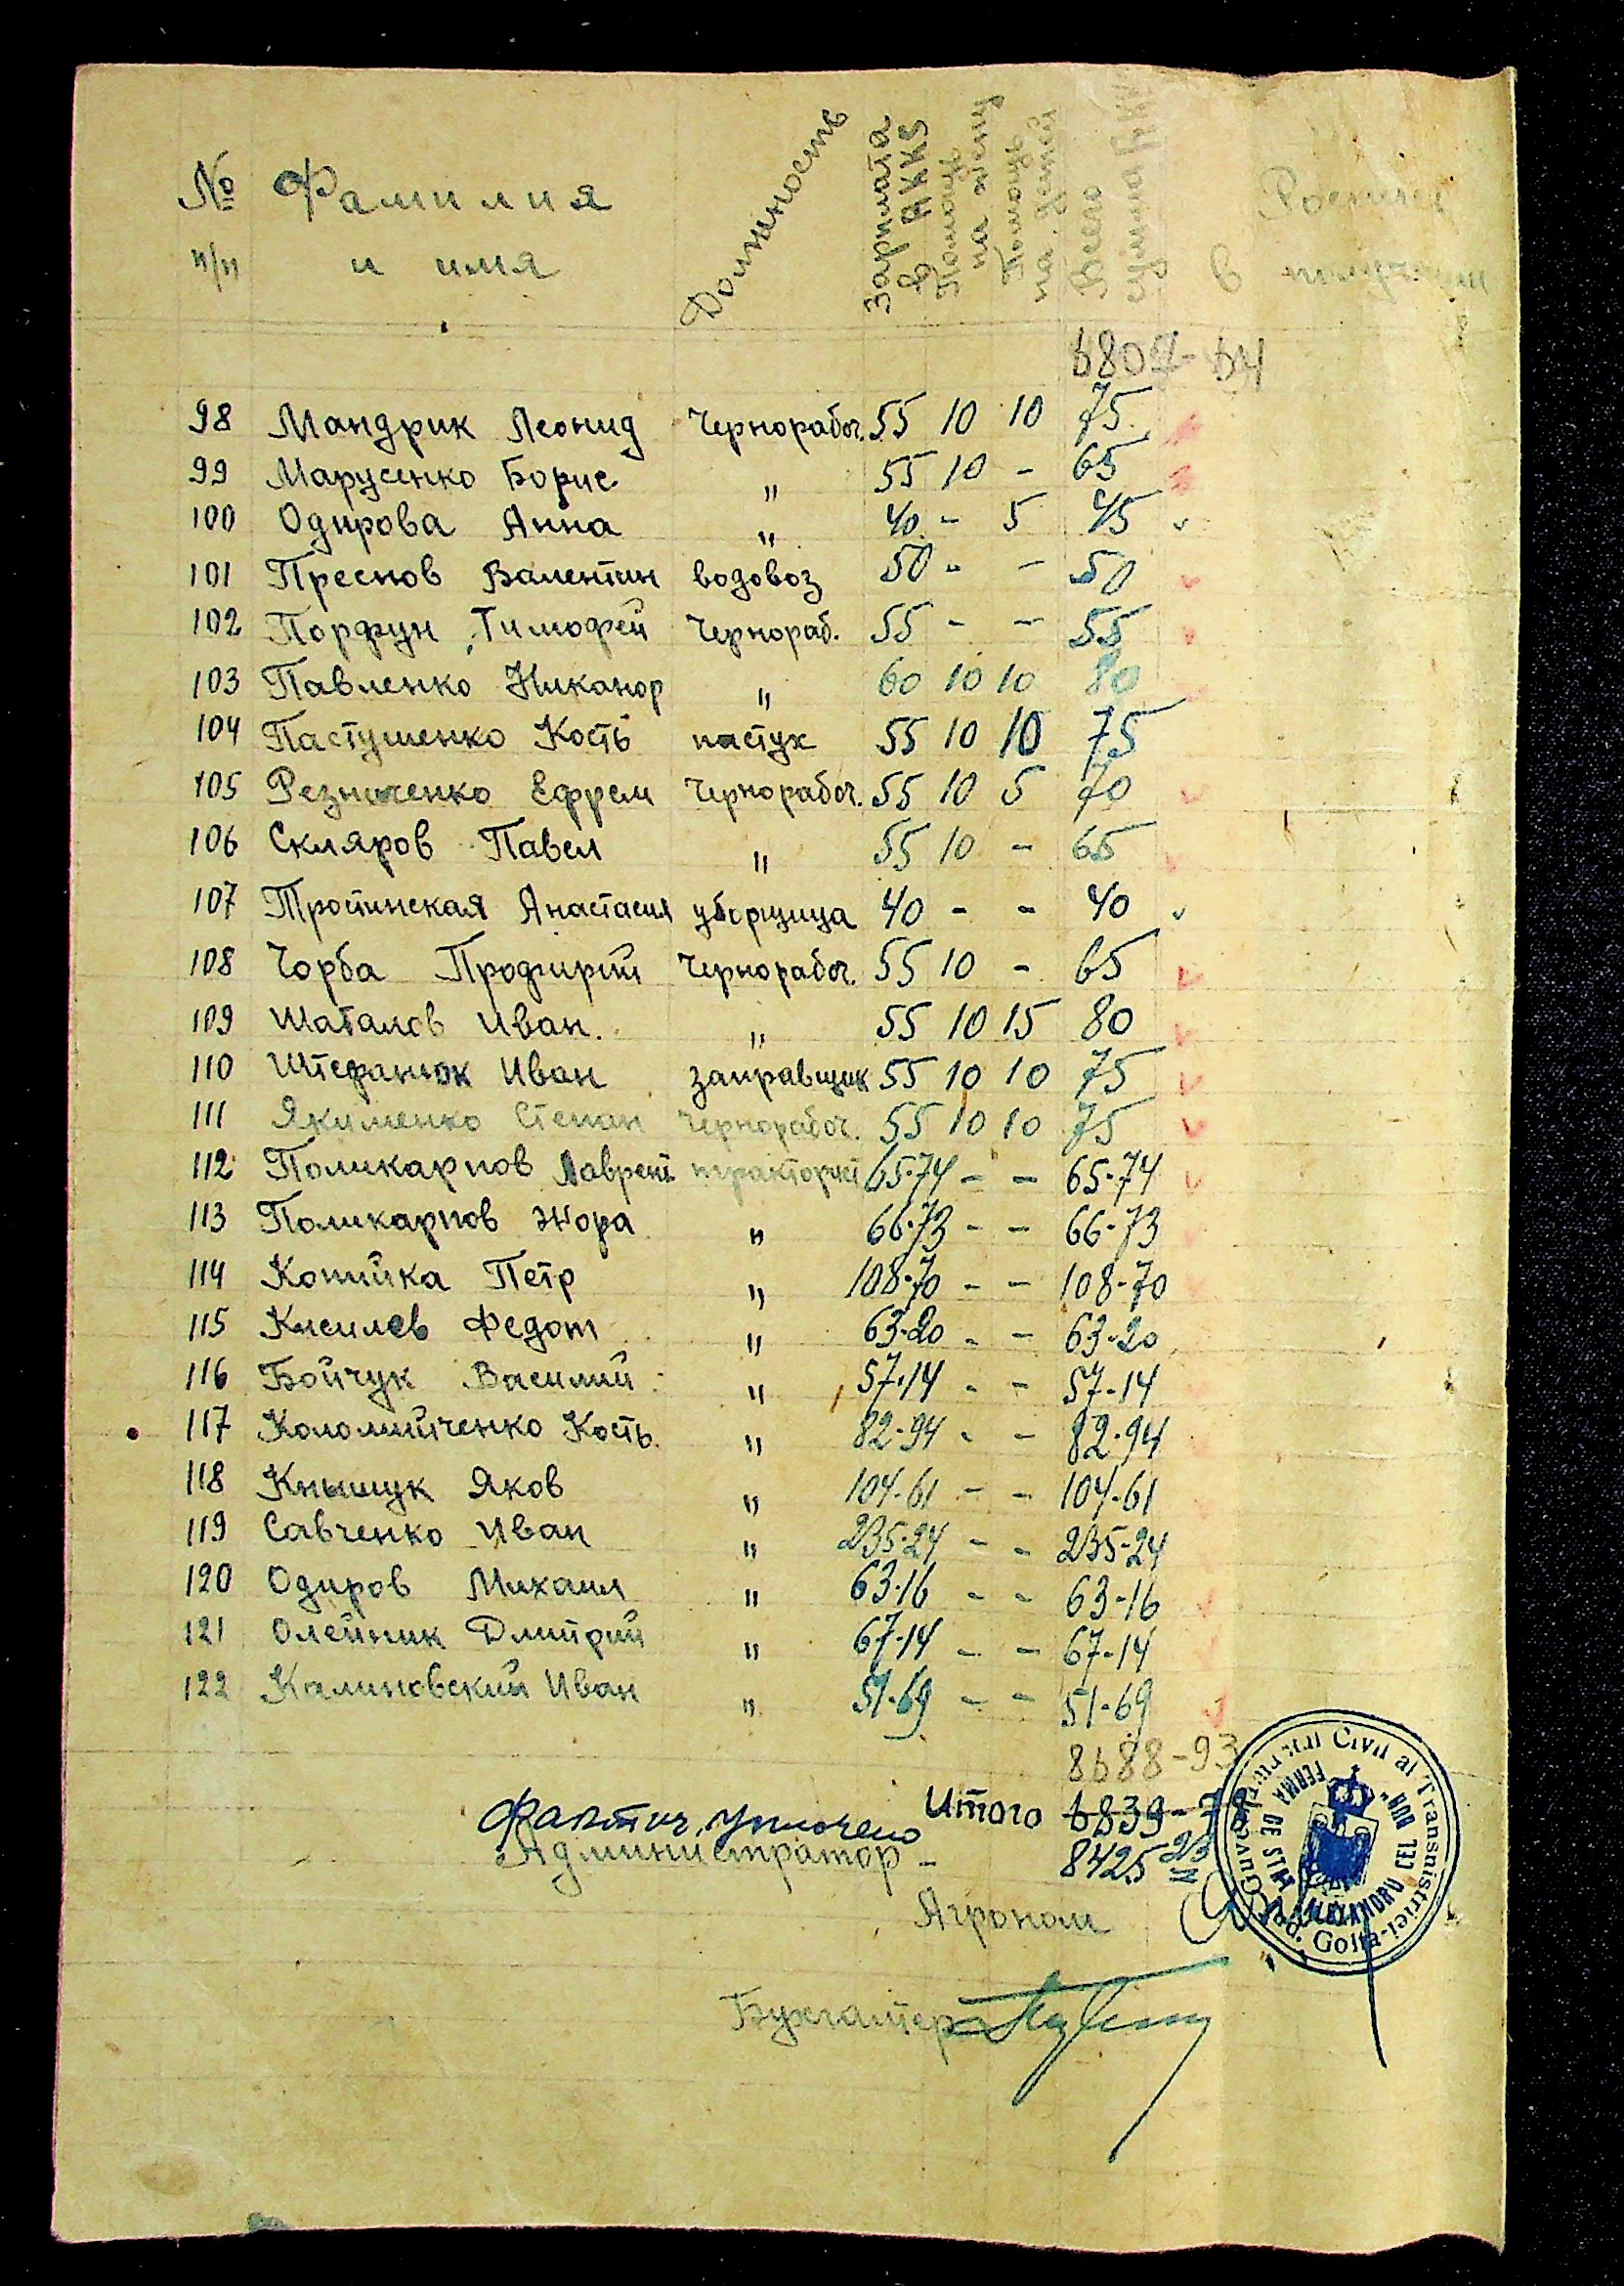 № Фамилия Должность Зарплата Помощь Помощь Всего Роспись
п/п и имя в RKKS на жену на детей сумма RK в получении
6807-64
98 Мандрик Леонид Чернорабоч. 55 10 10 75
99 Марусенко Борис " 55 10 - 65
100 Одирова Анна " 40 - 5 45
101 Преснов Валентин водовоз 50 - - 50
102 Порфун Тимофей Чернораб. 55 - - 55
103 Павленко Никанор " 60 10 10 80
104 Пастушенко Кость пастух 55 10 10 75
105 Резниченко Ефрем Чернорабоч. 55 10 5 70
106 Скляров Павел " 55 10 - 65
107 Тростинская Анастасия уборщица 40 - - 40
108 Чорба Профирий Чернорабоч. 55 10 - 65
109 Шаталов Иван. " 55 10 15 80
110 Штефанюк Иван заправщик 55 10 10 75
111 Якименко Степан Чернорабоч. 55 10 10 75
112 Поликарпов Лаврент. тракторист 65-74 - - 65-74
113 Поликарпов Жора " 66-73 - - 66-73
114 Копийка Петр " 108-70 - - 108-70
115 Киселев Федот " 63-20 - - 63-20
116 Бойчук Василий " 57-14 - - 57-14
117 Коломийченко Кость. " 82-94 - - 82-94
118 Кнышук Яков " 104-61 - - 104-61
119 Савченко Иван " 235-24 - - 235-24
120 Одиров Михаил " 63-16 - - 63-16
121 Олейник Дмитрий " 67-14 - - 67-14
122 Калиновский Иван " 51-69 - - 51-69
8688-93
Итого 6839-78
Фактич. уплочено
Администратор - 8425 23
Агроном
Бухгалтер
Guvernământul Civil al Transnistriei
Jud. Golta
FERMA DE STAT
"ALEXANDRU CEL BUN"